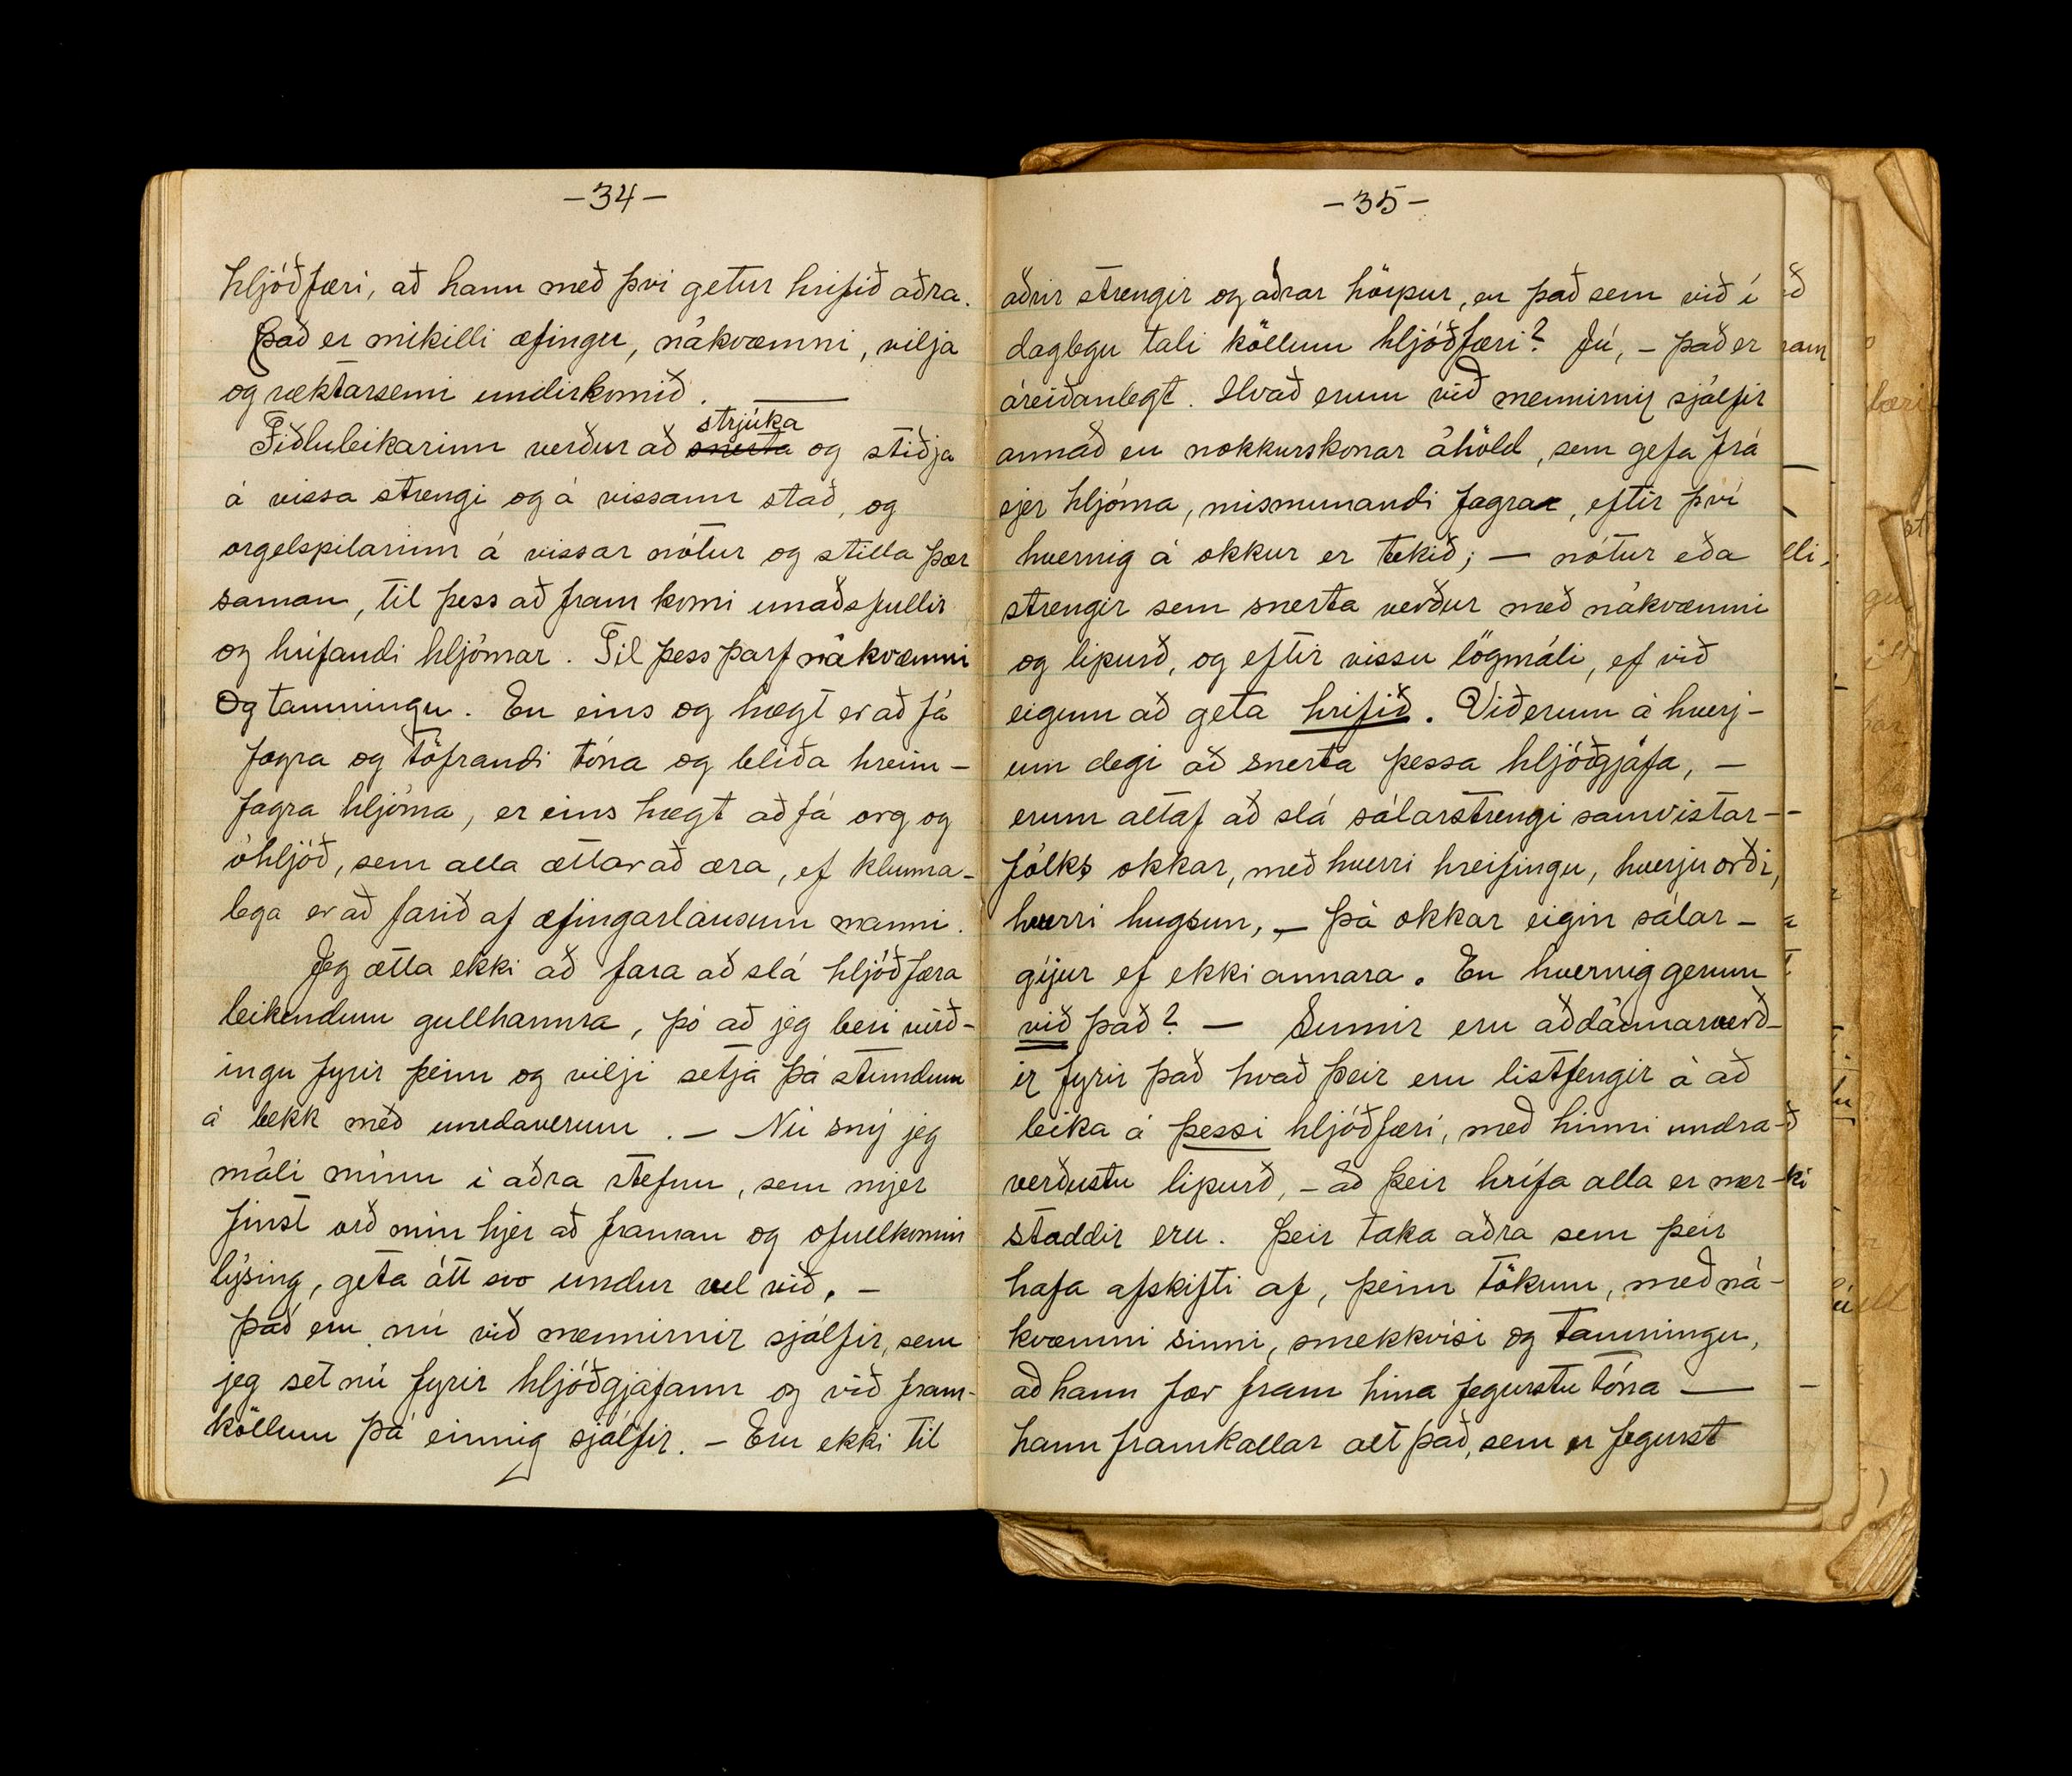 -34-
hljóðfæri, að hann með því getur hrifið aðra.
Það er mikilli æfingu, nákvæmni, vilja
og ræktarsemi undirkomið.
strjúka
Fiðluleikarinn verður að snerta og stiðja
á vissa strengi og á vissann stað, og
orgelspilarinn á vissar nótur og stilla þær
saman, til þess að fram komi unaðsfullir
og hrífandi hljómar. Til þess þarf nákvæmni
og tamningu. En eins og hægt er að fá
fagra og töfrandi tóna og blíða hreim-
fagra hljóma, er eins hægt að fá org og
óhljóð, sem alla ætlar að æra, ef klunna-
lega er að farið af æfingarlausum manni.
Jeg ætla ekki að fara að slá hljóðfæra
leikendum gullhamra, þó að jeg beri virð-
ingu fyrir þeim og vilji setja þá stundum
á bekk með undraverum. — Nú sný jeg
máli mínu i aðra stefnu, sem mjer
finst orð mín hjer að framan og ofullkomin
lýsing, geta átt svo undur vel við. —
Það eru nú við mennirnir sjálfir, sem
jeg set nú fyrir hljóðgjafann og við fram-
köllum þá einnig sjálfir. — Eru ekki til
-35-
aðrir strengir og aðrar hörpur, en það sem við í
daglegu tali köllum hljóðfæri? Jú, — það er
áreiðanlegt. Hvað erum við mennirnir sjálfir
annað en nokkurskonar áhöld, sem gefa frá
sjer hljóma, mismunandi fagra, eftir því
hvernig á okkur er tekið; — nótur eða
strengir sem snerta verður með nákvæmni
og lipurð, og eftir vissu lögmáli, ef við
eigum að geta hrifið. Við erum á hverj-
um degi að snerta þessa hljóðgjafa, —
erum altaf að slá sálarstrengi samvistar-
fólks okkar, með hverri hreifingu, hverju orði,
hverri hugsun, — þá okkar eigin sálar-
gígjur ef ekki annara. En hvernig gerum
við það? — Sumir eru aðdáunarverð-
ir fyrir það hvað þeir eru listfengir á að
leika á þessi hljóðfæri, með hinni undra-
verðustu lipurð, — að þeir hrífa alla er nær-
staddir eru. Þeir taka aðra sem þeir
hafa afskifti af, þeim tökum, með ná-
kvæmni sinni, smekkvísi og tamningu,
að hann fær fram hina fegurstu tóna —
hann framkallar alt það, sem er fegurst